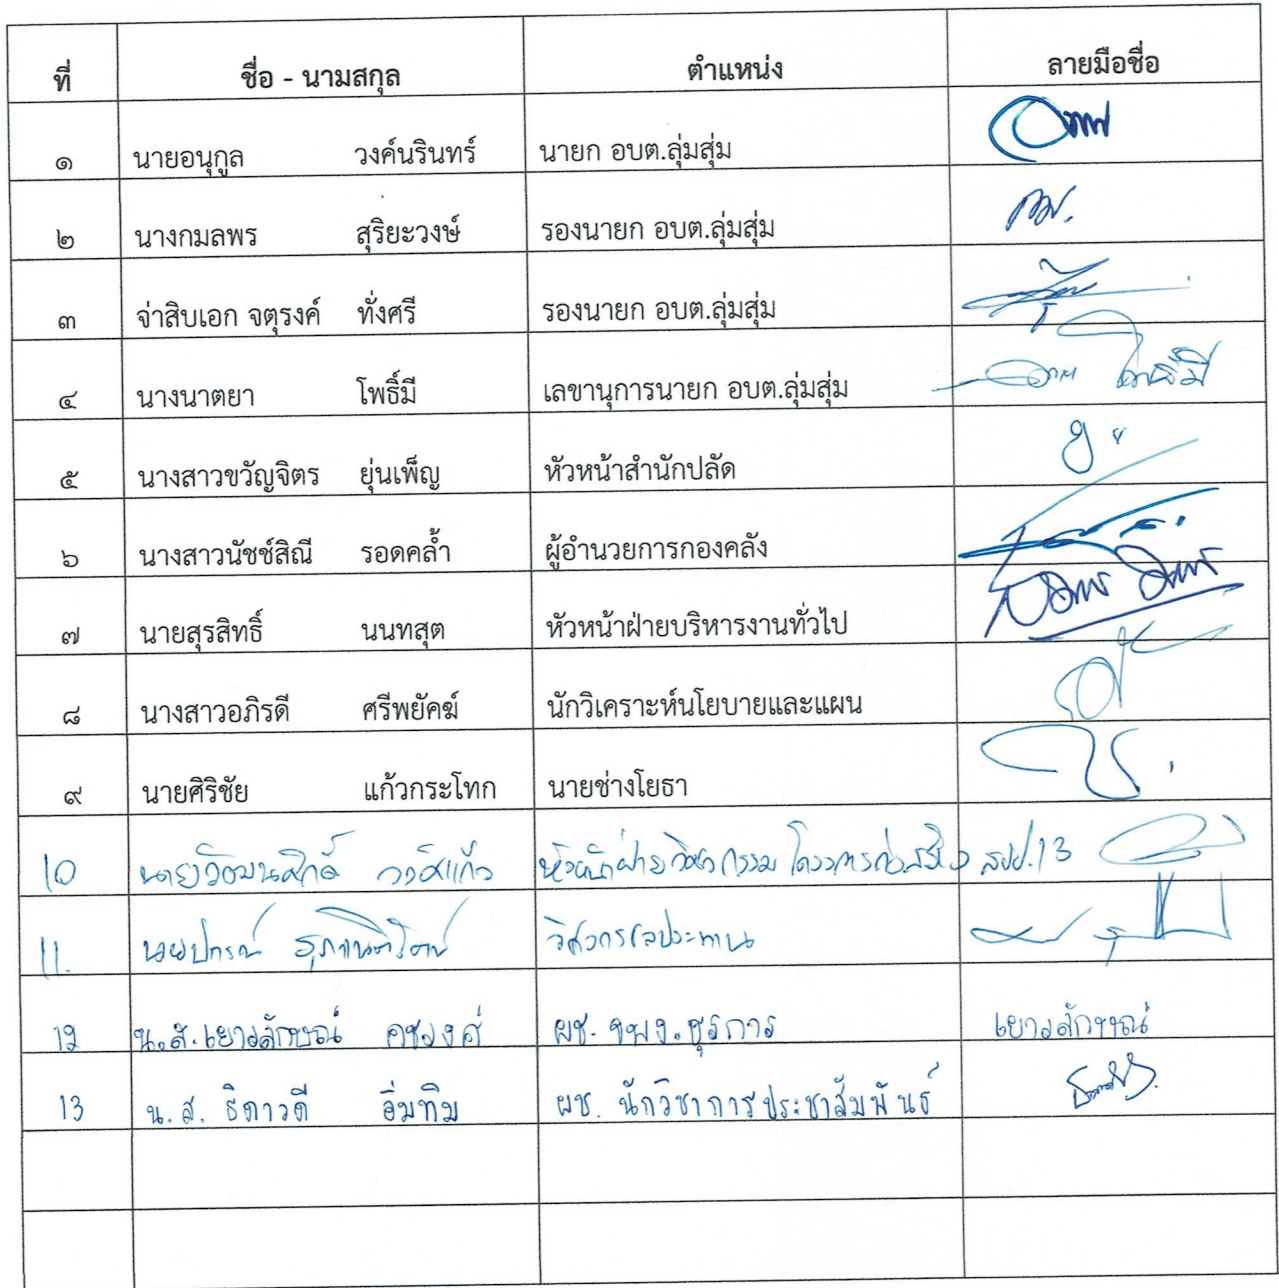 ที่ ชื่อ - นามสกุล ตำแหน่ง ลายมือชื่อ
๑ นายอนุกูล วงค์นรินทร์ นายก อบต.ลุ่มสุ่ม
๒ นางกมลพร สุริยะวงษ์ รองนายก อบต.ลุ่มสุ่ม
๓ จ่าสิบเอก จตุรงค์ ทั่งศรี รองนายก อบต.ลุ่มสุ่ม
๔ นางนาตยา โพธิ์มี เลขานุการนายก อบต.ลุ่มสุ่ม
๕ นางสาวขวัญจิตร ยุ่นเพ็ญ หัวหน้าสำนักปลัด
๖ นางสาวนัชช์สิณี รอดคล้ำ ผู้อำนวยการกองคลัง
๗ นายสุรสิทธิ์ นนทสุต หัวหน้าฝ่ายบริหารงานทั่วไป
๘ นางสาวอภิรดี ศรีพยัคฆ์ นักวิเคราะห์นโยบายและแผน
๙ นายศิริชัย แก้วกระโทก นายช่างโยธา
10 วงศ์แก้ว หัวหน้าฝ่ายวิศวกรรม โครงการก่อสร้าง สชป.13
11. นายปกรณ์ วิศวกรชลประทาน
12 น.ส.เยาวลักษณ์ คชวงศ์ ผช. จพง.ธุรการ เยาวลักษณ์
13 น.ส. ธิดาวดี อิ่มทิม ผช. นักวิชาการประชาสัมพันธ์